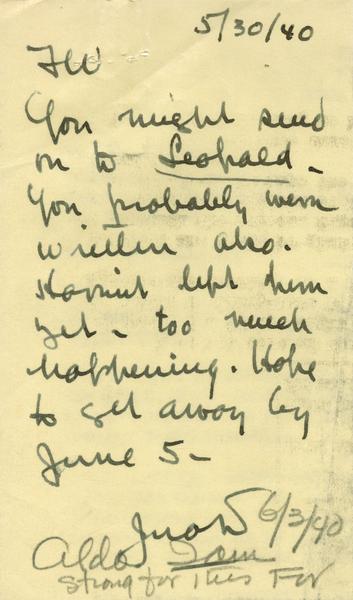 5/30/40
FW
You might send
on to Leopold -
You probably were
written also.
Haven't left here
yet - too much
happening. Hope
to get away by
June 5 -
6/3/40
Aldo
Strong for this For